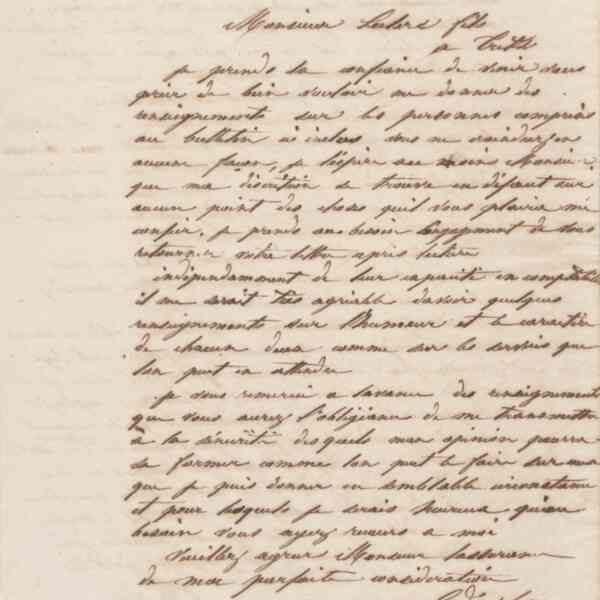 Monsieur Leclerc fils
a Trith
je prends la confiance de venir vous
prier de bien vouloir me donner des
renseignements sur les personnes compris
au bulletin ci inclus vous ne craindrez en
aucune façon, je l'espère au moins Monsieur
que ma discrétion se trouve en défaut sur
aucun point des choses quil vous plaira me
confier. je prends au besoin l'engagement de vous
retourner votre lettre après lecture
indépendamment de leur capacité en comptabilité
il me serait très agréable davoir quelques
renseignements sur l'humeur et le caractère
de chacun deux comme sur les services que
lon peut en attendre
je vous remercie a lavance des renseignements
que vous aurez l'obligeance de me transmettre
à la sincérité desquels mon opinion pourra
se former comme lon peut le faire sur ceux
que je puis donner en semblable circonstance
et pour lesquels je serais heureux qu'au
besoin vous ayez recours a moi
Veuillez agréer Monsieur lassurance
de ma parfaite considération